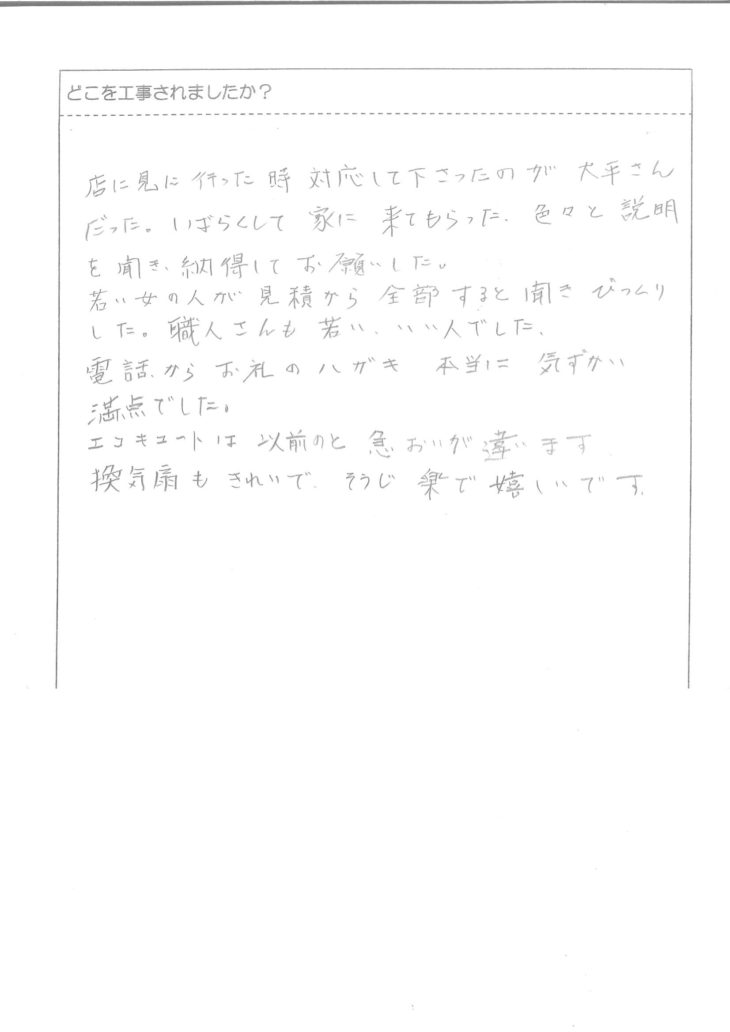 どこを工事されましたか？
店に見に行った時 対応して下さったのが 大平さん
だった。いばらくして 家に 来てもらった、色々と 説明
を聞き、納得してお願いした。
若い女の人が 見積から 全部 すると 聞き びっくり
した。職人さんも 若い、いい人でした、
電話からお礼のハガキ 本当に 気ずかい
満点でした。
エコキュートは 以前のと 急おいが違います
換気扇も きれいで、そうじ 楽で 嬉しいです、